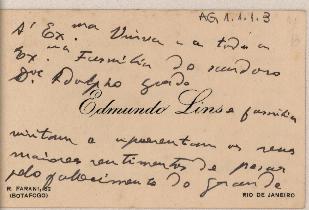 AG 1.1.1.3
A' Ex.ma Viuva e a toda a
Ex.ma Familia do saudoso
Dr. Adolpho Gordo
Edmundo Lins e familia
visitam e apresentam os seus
maiores sentimentos de pesar
pelo fallecimento do grande
R. FARANI, 52
(BOTAFOGO)
RIO DE JANEIRO